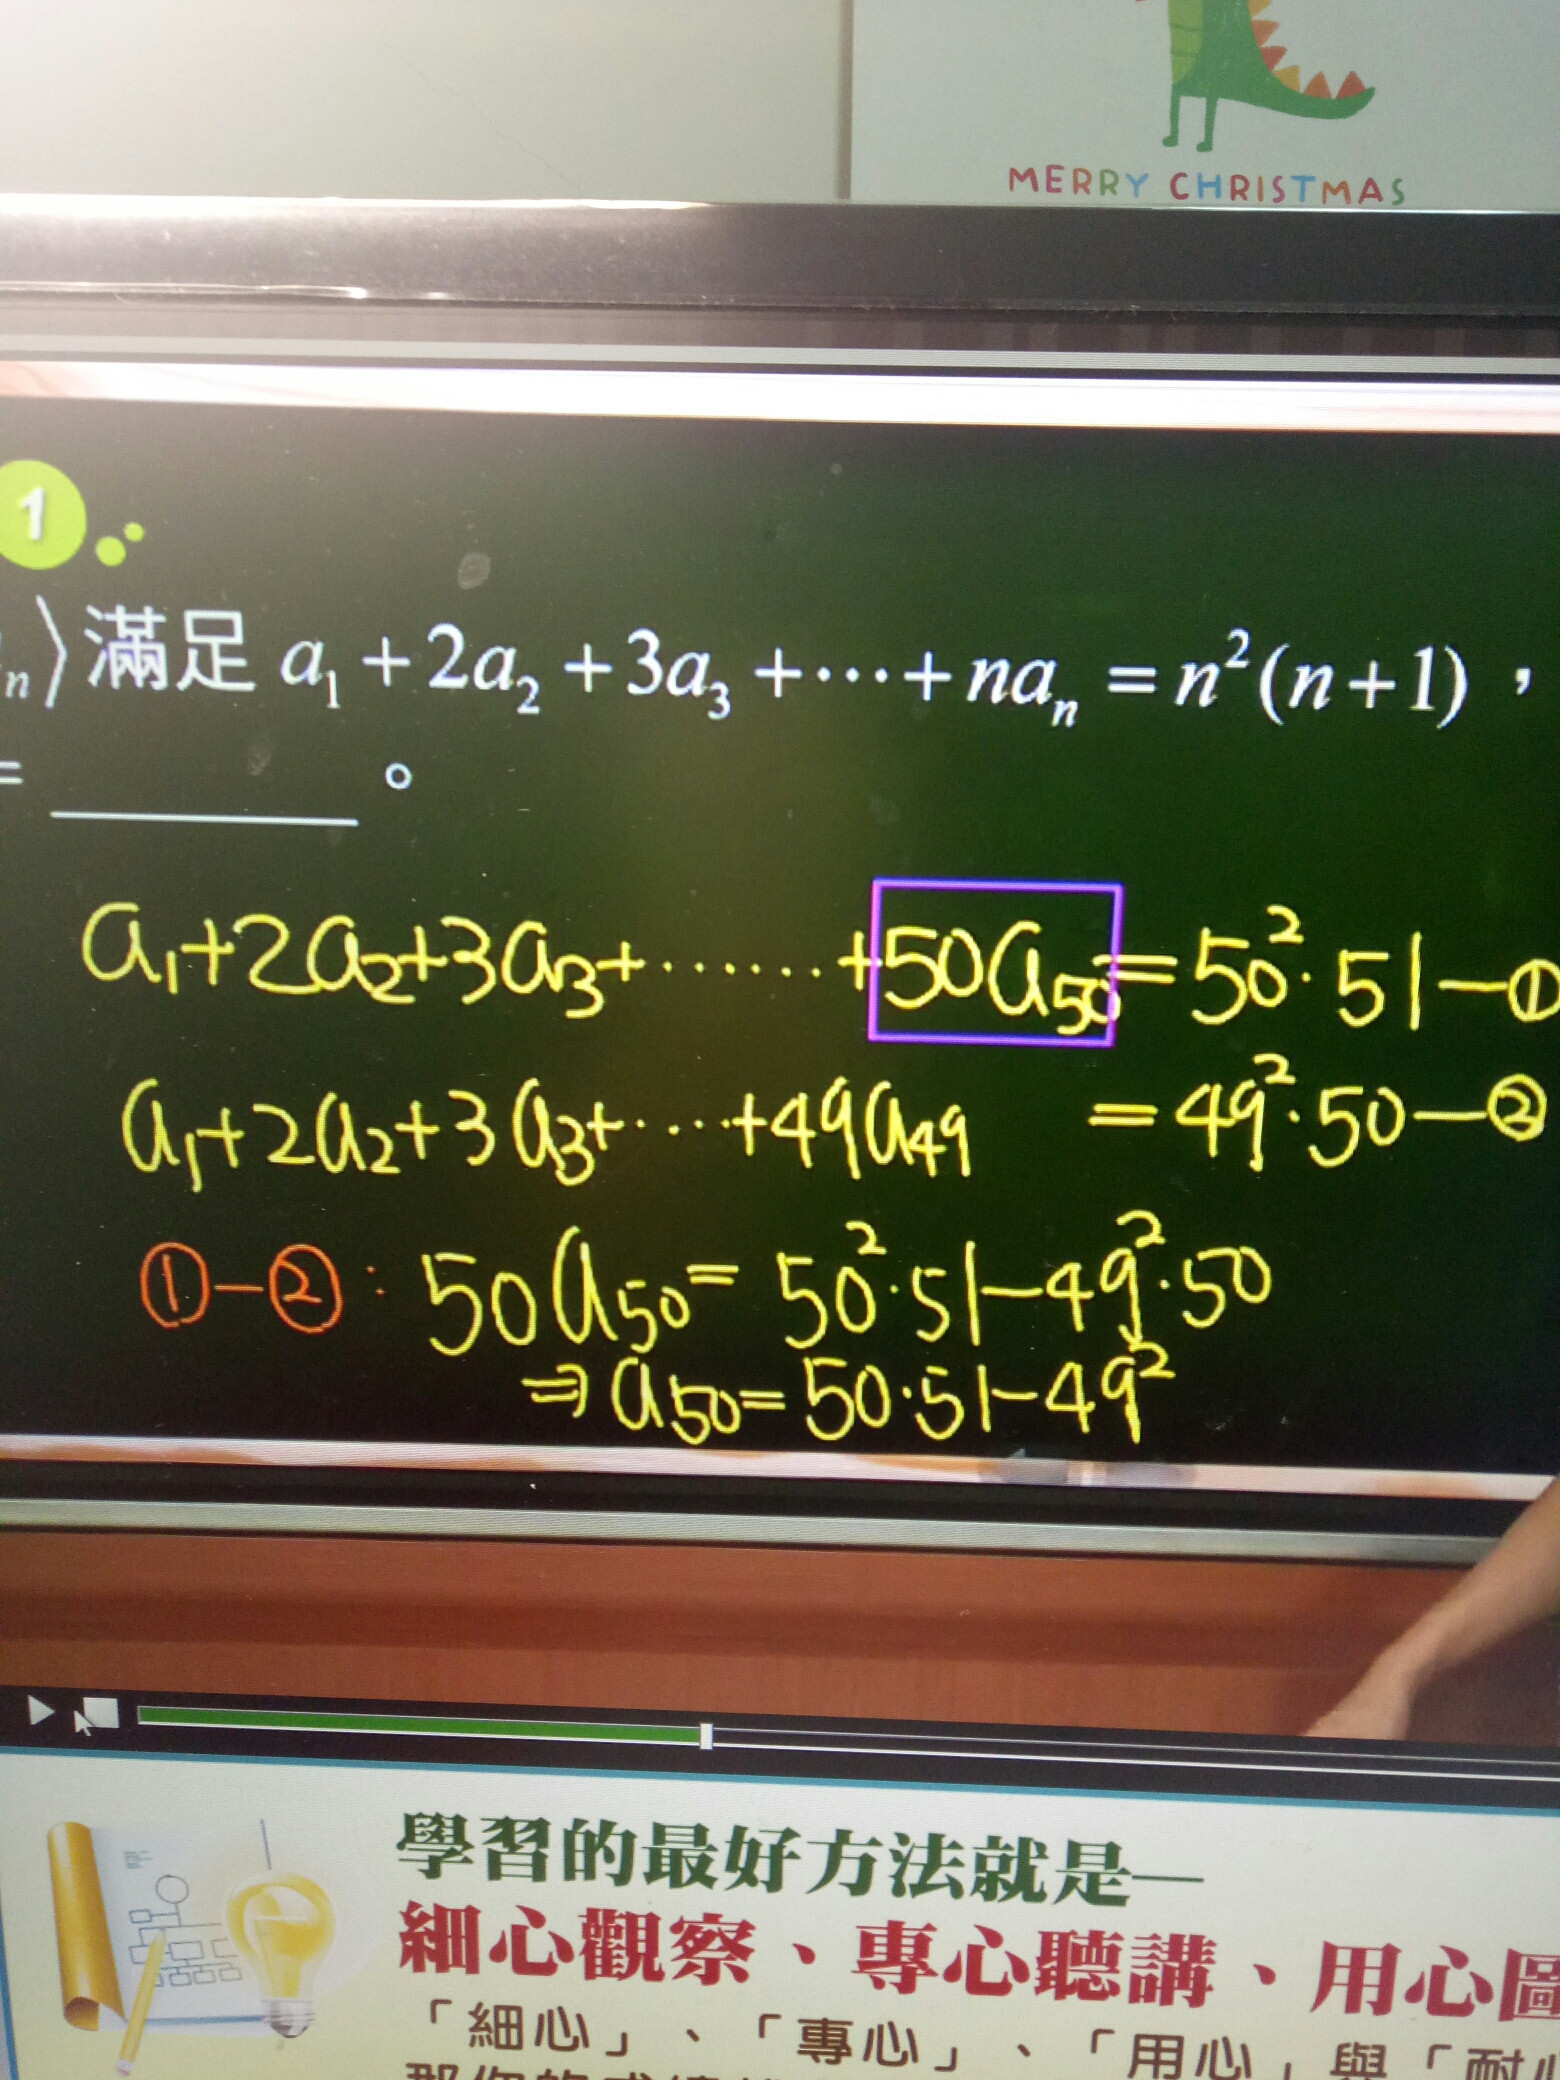 MERRY CHRISTMAS
1
n⟩滿足 a₁+2a₂+3a₃+⋯+naₙ=n²(n+1),
= ______ 。
a₁+2a₂+3a₃+⋯⋯+50a₅₀=50²·51—①
a₁+2a₂+3a₃+⋯⋯+49a₄₉=49²·50—②
①-②: 50a₅₀=50²·51-49²·50
⇒a₅₀=50·51-49²
學習的最好方法就是—
細心觀察、專心聽講、用心圖
「細心」、「專心」、「用心」與「耐心